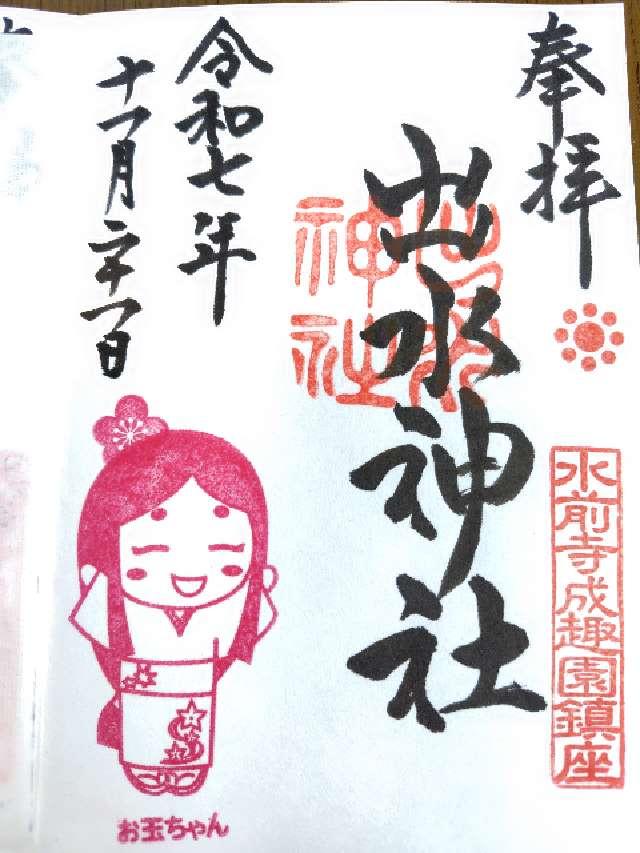 奉拝
水前寺成趣園鎮座
出水神社
出水神社
令和七年
十一月二十一日
お玉ちゃん